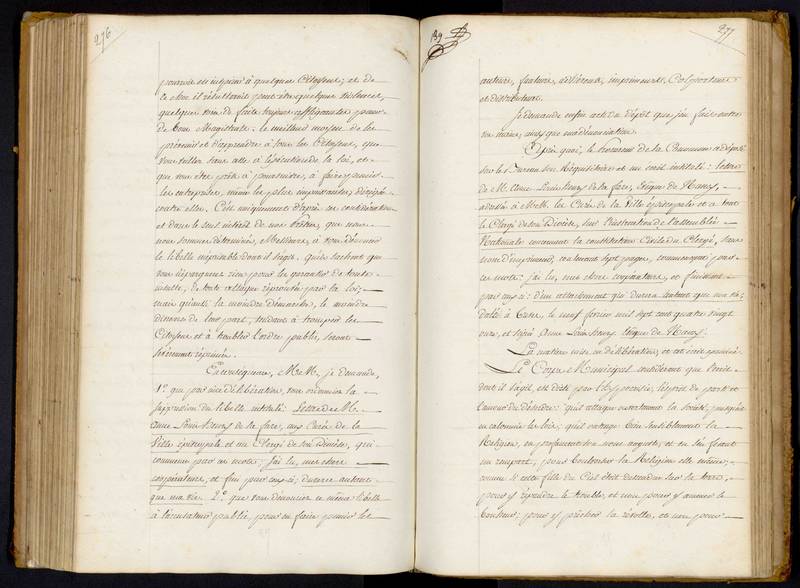 276
pourroit en inspirer à quelques Citoyens; et de
ce choc il résulteroit peut être quelques violences,
quelques voies de faits toujours affligeantes pour
de bons Magistrats: le meilleur moyen de les
prévenir est d'apprendre à tous les Citoyens, que
vous veillez sans cesse à l'exécution de la loi, et
que vous êtes prêts à poursuivre, à faire punir
les entreprises, même les plus impuissantes, dirigées
contre elles. C'est uniquement d'après ces considérations
et dans le seul intérêt de nos Prêtres, que nous
nous sommes déterminés, Messieurs, à vous dénoncer
le libelle méprisable dont il s'agit, qu'ils sachent que
vous n'épargnerez rien pour les garantir de toute
insulte, de toute attaque réprouvée par la loi;
mais qu'aussi la moindre démarche, le moindre
discours de leur part, tendant à tromper les
Citoyens et à troubler l'ordre public, seront
sévèrement réprimés.
En conséquence, MM., je demande,
1.° que par vôtre délibération, vous ordonniez la
suppression du libelle intitulé: Lettre de M.
Anne Louis Henry de la fare, aux Curés de la
Ville épiscopale et au Clergé de son Diocèse, qui
commence par ces mots: j'ai lu, mes chers
coopérateurs, et finit par ceux-ci; durera autant
que ma vie. 2.° que vous dénonciez ce même libelle
à l'accusateur public, pour en faire punir les
139
277
auteurs, fauteurs, adhérens, imprimeurs, Colporteurs
et distributeurs.
Je demande enfin acte du dépôt que je fais entre
vos mains, ainsi que ma dénonciation.
Après quoi, le Procureur de la Commune a déposé
sur le Bureau son Réquisitoire et un écrit intitulé: lettre
de M. Anne Louis Henry de la fare, Evêque de Nancy,
adressée à MM. les Curés de la Ville épiscopale et à tout
le Clergé de son Diocèse, sur l'instruction de l'assemblée
Nationale concernant la constitution Civile du Clergé, sans
nom d'imprimeur, contenant sept pages, commençant par
ces mots: j'ai lu, mes chers coopérateurs, et finissant
par ceux-ci: d'un attachement qui durera autant que ma vie.
datée à Trèves, le neuf février mil sept cent quatre vingt
onze, et signée Anne Louis Henry Evêque de Nancy.
La matière mise en délibération, et cet écrit examiné.
Le Corps Municipal considérant que l'écrit
dont il s'agit, est dicté par l'hypocrisie, l'esprit de parti et
l'amour du désordre: qu'il attaque ouvertement la société, puisqu'il
en calomnie les loix, qu'il outrage bien sensiblement la
Religion, en profanant son nom auguste, et en s'en faisant
un rempart, pour bouleverser la Religion elle même;
comme si cette fille du Ciel étoit descendue sur la terre,
pour y répandre le trouble, et non pour y amener le
bonheur; pour y prêcher la révolte, et non pour